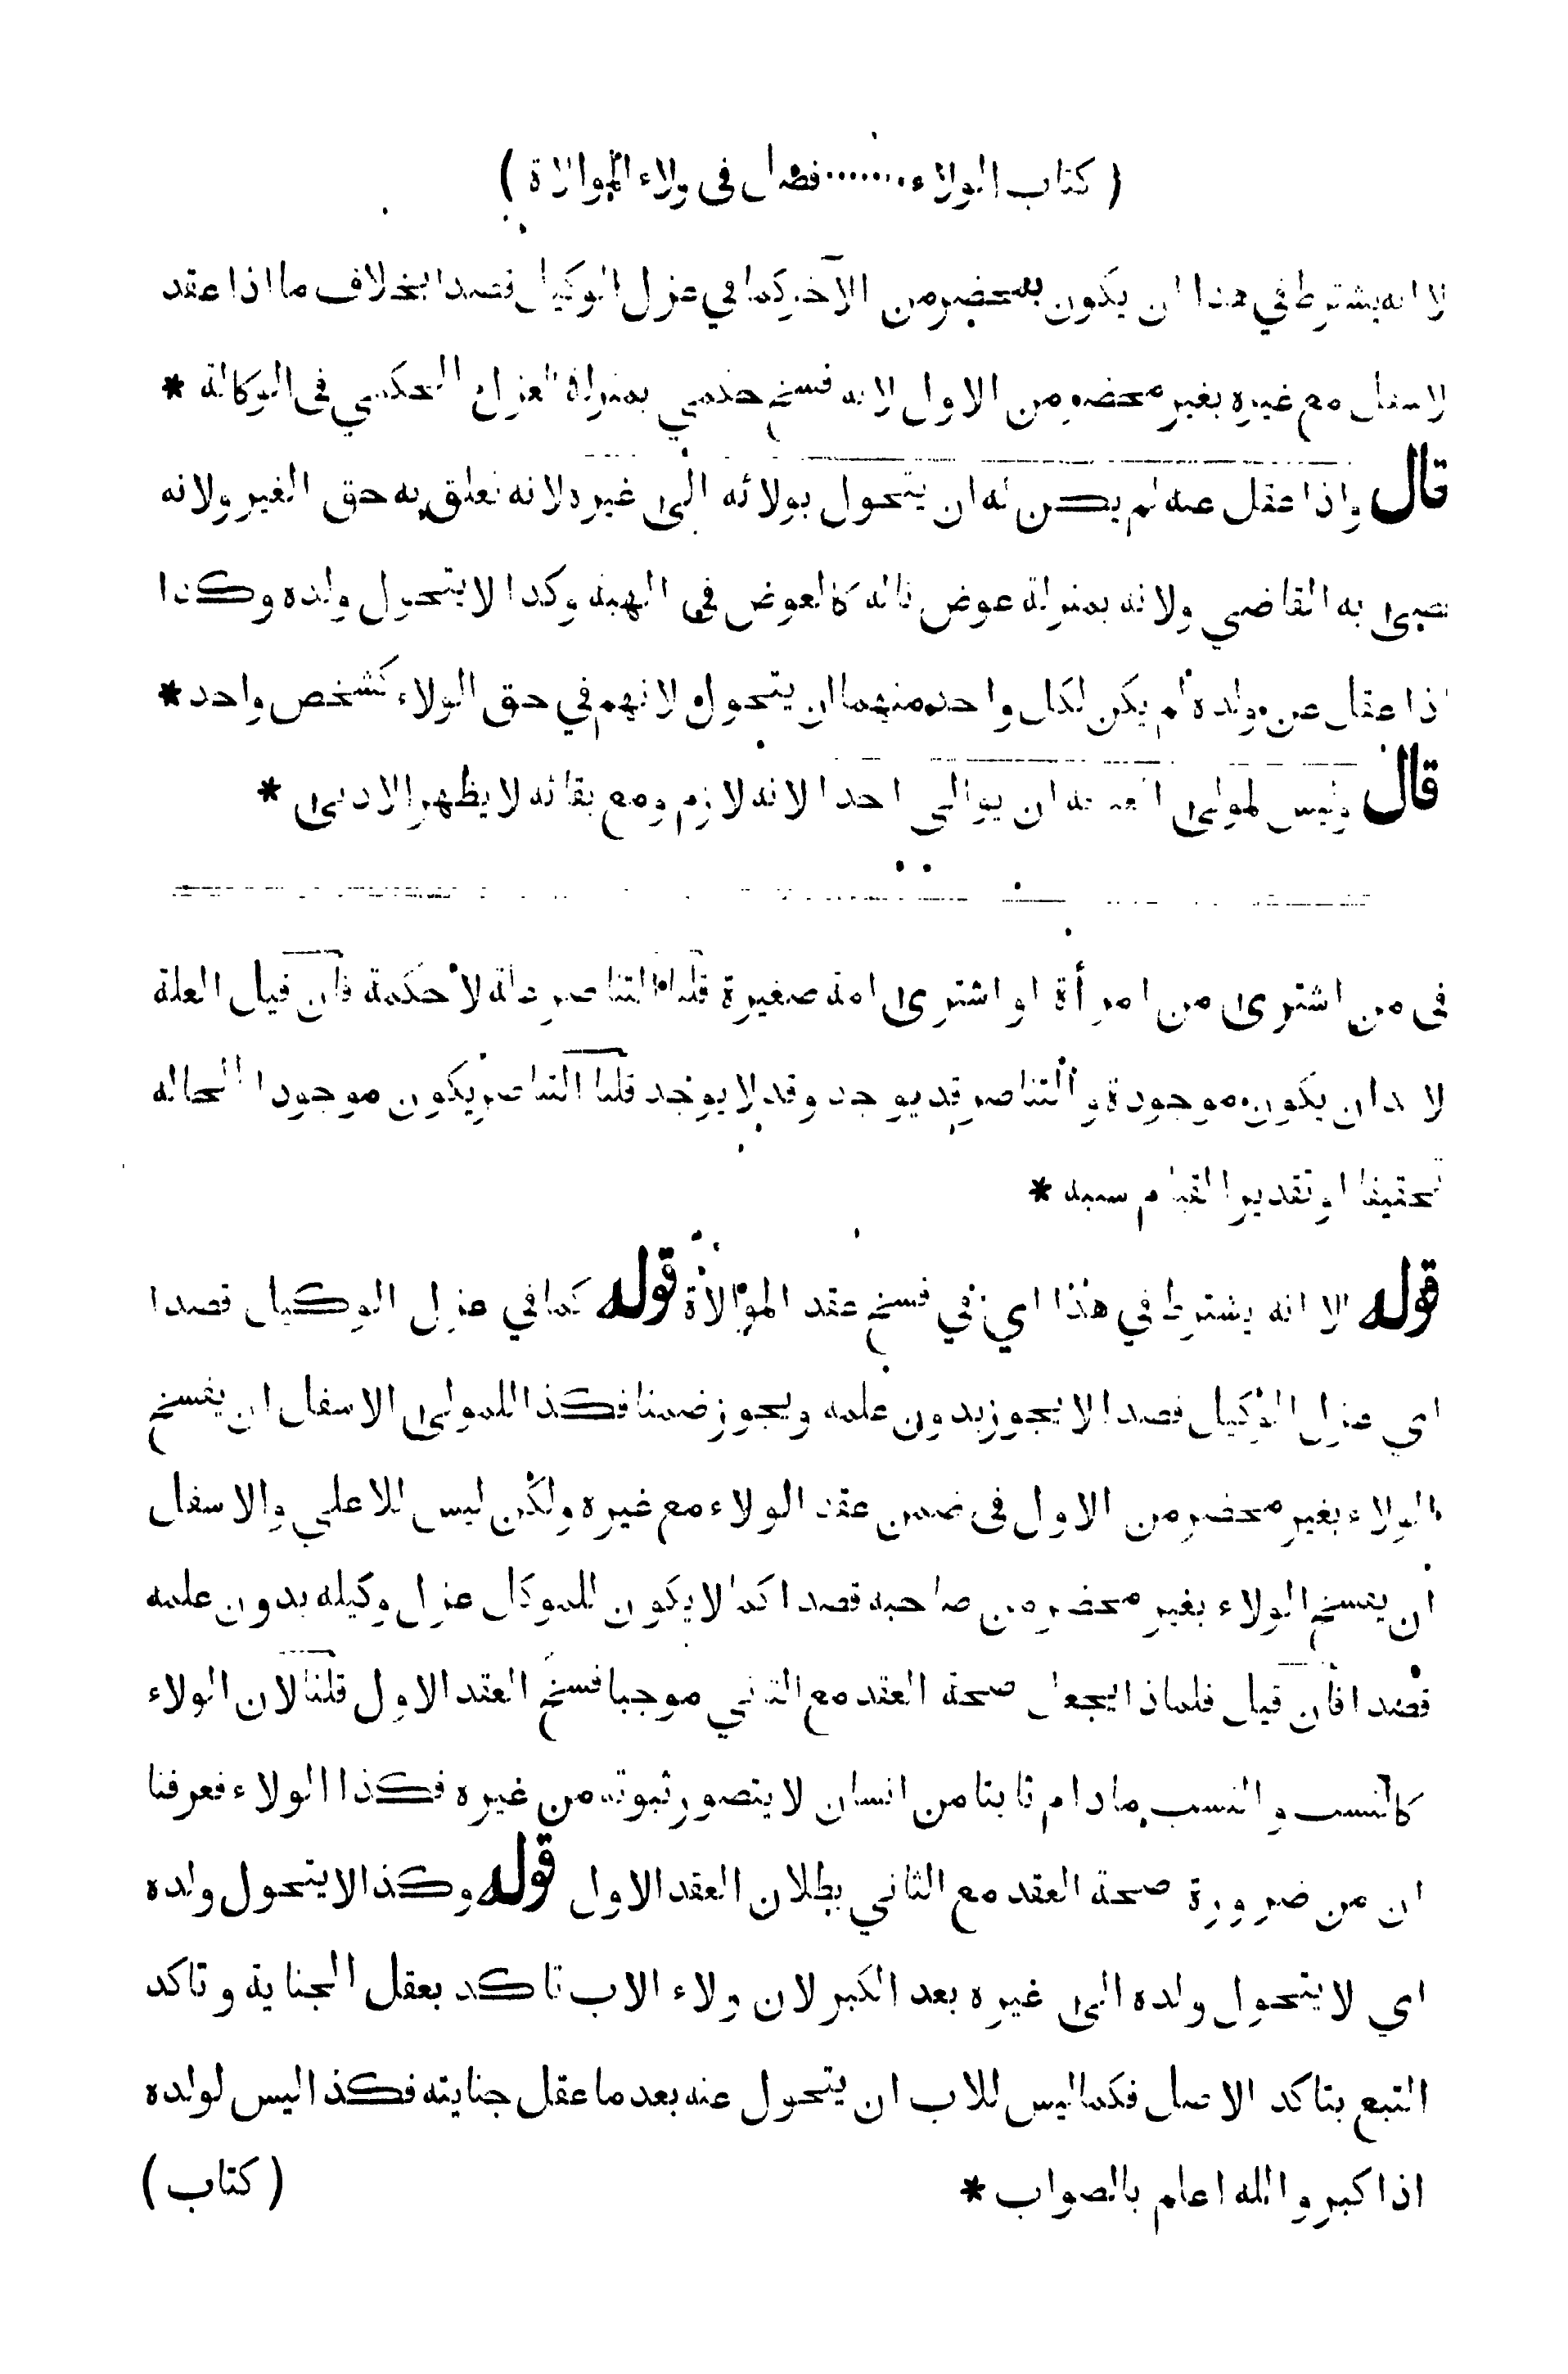 ( كتاب الولاء ······· فصل فى ولاء الموالاة )
الا انه يشترط في هذا ان يكون بمحضر من الآخر كما في عزل الوكيل قصدا بخلاف ما اذا عقد
الاسفل مع غيره بغير محضر من الاول لانه فسخ حكمي بمنزلة العزل الحكمي فى الوكالة *
قال واذا عقل عنه لم يكن له ان يتحول بولائه الى غيره لانه تعلق به حق الغير ولانه
قضى به القاضي ولانه بمنزلة عوض ناله كالعوض فى الهبة وكذا لا يتحول ولده وكذا
اذا عقل عن ولده لم يكن لكل واحد منهما ان يتحول لانهم في حق الولاء كشخص واحد *
قال وليس لمولى العتاقة ان يوالي احدا لانه لازم ومع بقائه لا يظهر الادنى *
فى من اشترى من امرأة او اشترى امة صغيرة قلنا التناصر علة لا حكمة فان قيل العلة
لا بد ان يكون موجودة والتناصر قد يوجد وقد لا يوجد قلنا التناصر يكون موجودا لا محالة
تحقيقا او تقديرا لقيام سببه *
قوله الا انه يشترط في هذا اي في فسخ عقد الموالاة قوله كما في عزل الوكيل قصدا
اي عزل الوكيل قصدا لا يجوز بدون علمه ويجوز ضمنا فكذا للمولى الاسفل ان يفسخ
الولاء بغير محضر من الاول فى ضمن عقد الولاء مع غيره ولكن ليس للاعلي والاسفل
ان يفسخ الولاء بغير محضر من صاحبه قصدا كما لا يكون للموكل عزل وكيله بدون علمه
قصدا فان قيل فلماذا يجعل صحة العقد مع الثاني موجبا فسخ العقد الاول قلنا لان الولاء
كالنسب والنسب ما دام ثابتا من انسان لا يتصور ثبوته من غيره فكذا الولاء فعرفنا
ان من ضرورة صحة العقد مع الثاني بطلان العقد الاول قوله وكذا لا يتحول ولده
اي لا يتحول ولده الى غيره بعد الكبر لان ولاء الاب تاكد بعقل الجناية وتاكد
التبع بتاكد الاصل فكما ليس للاب ان يتحول عنه بعد ما عقل جنايته فكذا ليس لولده
اذا كبر والله اعلم بالصواب *
( كتاب )